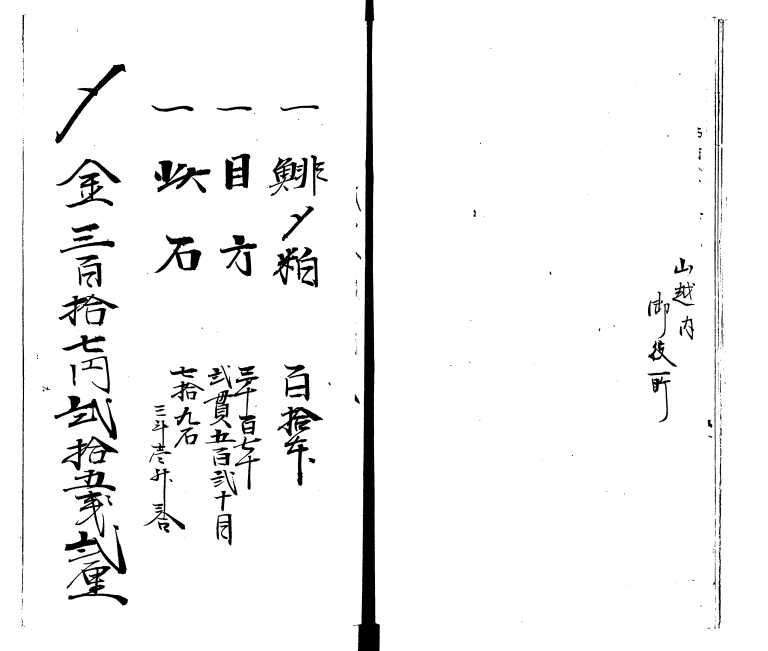 山越内
御役町
一 鯡〆粕 百拾本
一 目方 三千百七十
弐貫五百弐十目
一 此石 七拾九石
三斗壱升三合
〆金三百拾七円弐拾五銭弐厘